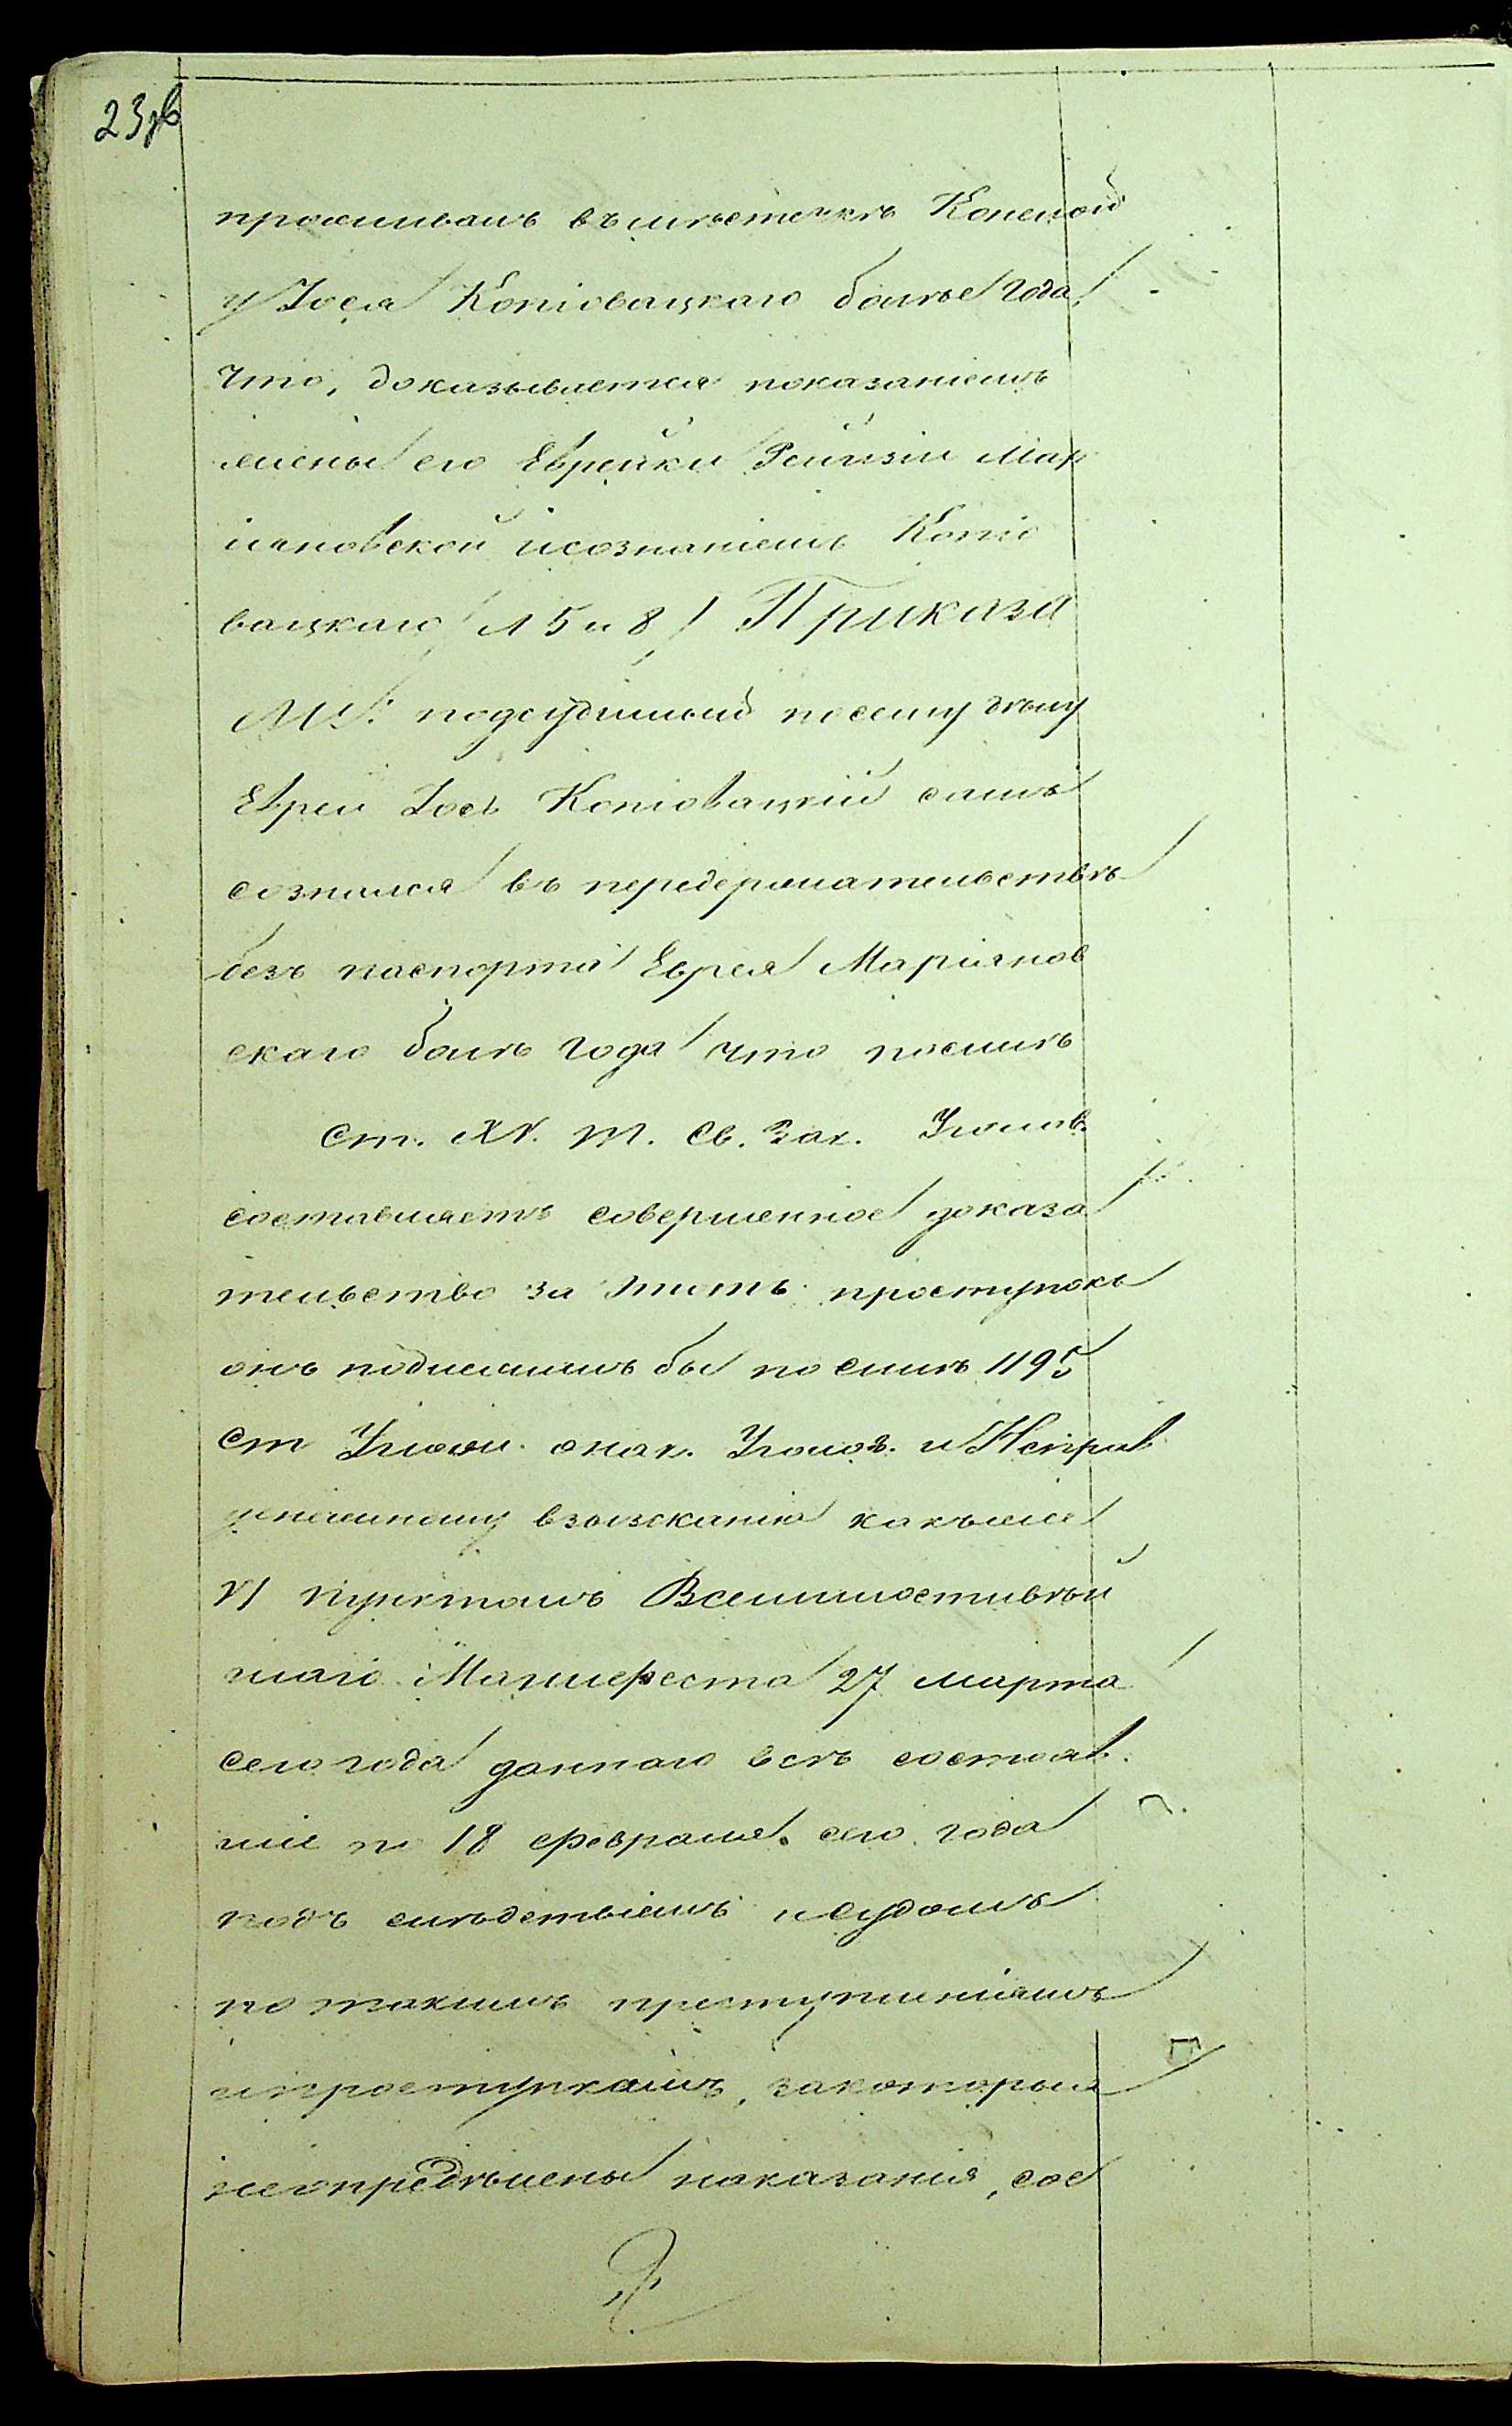 23зв
проживалъ въ мѣстечкѣ Конелой
у Іося Копіовацкаго болѣе года,
что, доказывается показаніемъ
жены его Еврейки Рейзи Мар
іяновской исознаніемъ Копіо
вацкаго / л 5 и 8 / Приказа
ли: подсудимый посему дѣлу
Еврей Іось Копіовацкій самъ
сознался въ передержательствѣ
безъ паспорта Еврея Маріянов
скаго болѣ года что посилѣ
ст. XV. Т. Св. Зак. Уголов.
составляетъ совершенное доказа
тельство за этотъ проступокъ
онъ подлежалъ бы по силѣ 1195
ст Улож. о нак. Уголов. и Исправ
ному взысканію какъже
VI пунктомъ Всемилостивѣй
шаго Манифеста 27 марта
сего года даннаго всѣ состояв
шіе по 18 февраля сего года
подъ слѣдствіемъ исудомъ
по такимъ преступленіямъ
ипроступкамъ, закоторыя
неопредѣлены наказанія, сое